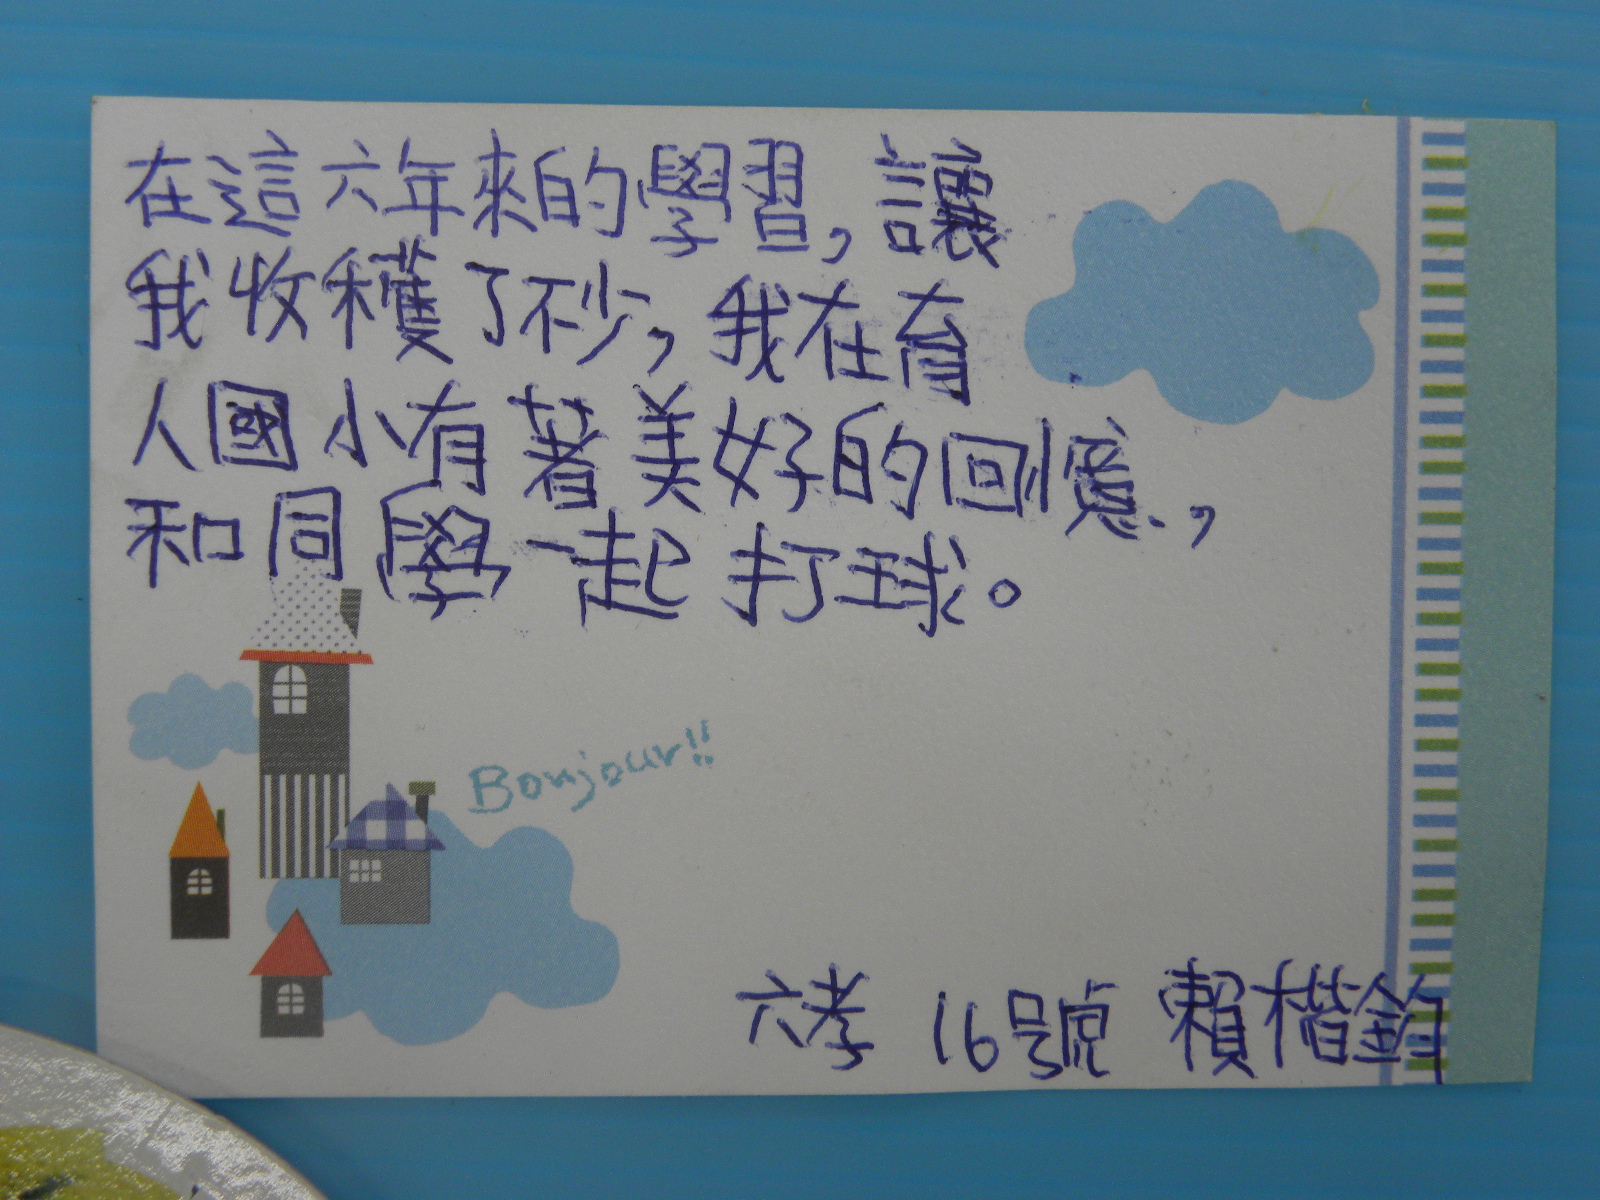 在這六年來的學習,讓
我收穫了不少,我在育
人國小有著美好的回憶,
和同學一起打球。
Bonjour!!
六孝 16號 賴楷鈞